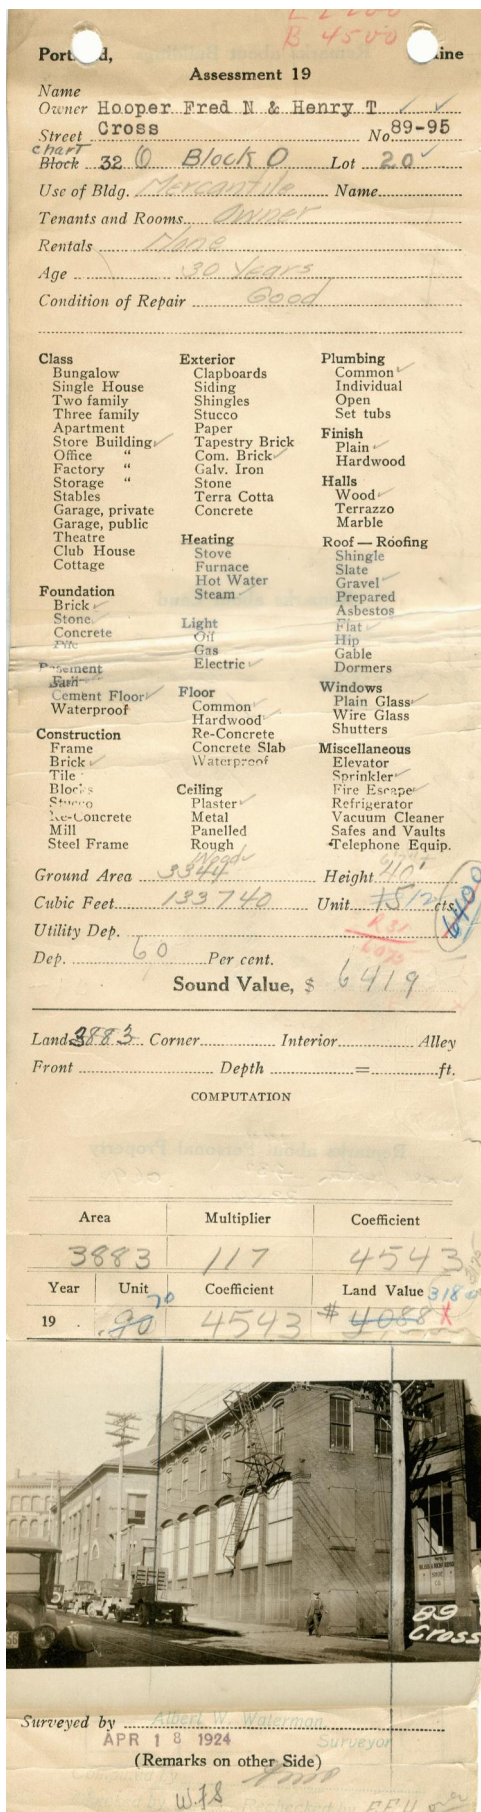 B 4500
Assessment 19
Name
Owner Hooper Fred N & Henry T
Street Cross No 89-95
chart
Block 32 Block O Lot 20
Use of Bldg. Mercantile Name
Tenants and Rooms Owner
Rentals None
Age 30 Years
Condition of Repair Good
Class
Bungalow
Single House
Two family
Three family
Apartment
Store Building ✓
Office "
Factory "
Storage "
Stables
Garage, private
Garage, public
Theatre
Club House
Cottage
Foundation
Brick ✓
Stone ✓
Concrete
Pile
Basement
Earth
Cement Floor ✓
Waterproof
Construction
Frame
Brick ✓
Tile
Blocks
Stucco
Re-Concrete
Mill
Steel Frame
Exterior
Clapboards
Siding
Shingles
Stucco
Paper
Tapestry Brick
Com. Brick ✓
Galv. Iron
Stone
Terra Cotta
Concrete
Heating
Stove
Furnace
Hot Water
Steam ✓
Light
Oil
Gas
Electric ✓
Floor
Common ✓
Hardwood ✓
Re-Concrete
Concrete Slab
Waterproof
Ceiling
Plaster ✓
Metal
Panelled
Rough
Wood ✓
Plumbing
Common ✓
Individual
Open
Set tubs
Finish
Plain ✓
Hardwood
Halls
Wood ✓
Terrazzo
Marble
Roof — Roofing
Shingle
Slate
Gravel ✓
Prepared
Asbestos
Flat ✓
Hip
Gable
Dormers
Windows
Plain Glass ✓
Wire Glass
Shutters
Miscellaneous
Elevator
Sprinkler ✓
Fire Escape ✓
Refrigerator
Vacuum Cleaner
Safes and Vaults
Telephone Equip.
Ground Area 3344 Height 40'
Cubic Feet 133740 Unit 12 cts.
6400
Utility Dep. R31
6075
Dep. 60 Per cent.
Sound Value, $ 6419
Land 3883 Corner Interior Alley
Front Depth = ft.
COMPUTATION
Area Multiplier Coefficient
3883 117 4543
Year Unit Coefficient Land Value 3180
70
19 . .90 4543 $ 4088 X
89
Cross
Surveyed by Albert W. Waterman
APR 18 1924 Surveyor
(Remarks on other Side)
W.F.S